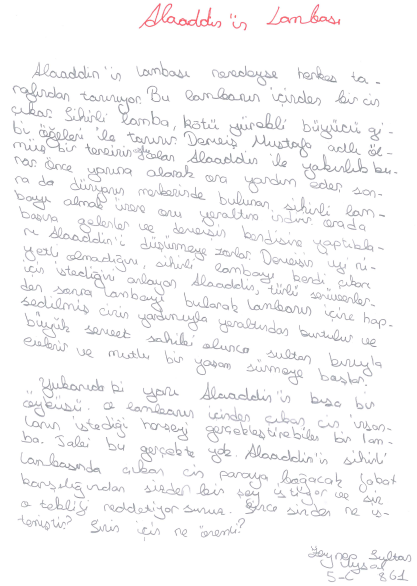 Alaaddin'in Lambası
Alaaddin'in lambası neredeyse herkes ta-
rafından tanınıyor. Bu lambanın içinden bir cin
çıkar. Sihirli lamba, kötü yürekli büyücü gi-
bi öğeleri ile tanınır. Derviş, Mustafa adlı öl-
müş bir terzinin oğlu olan Alaaddin ile yakınlık ku-
rar. Önce yanına alarak ona yardım eder son-
ra da dünyanın merkezinde bulunan sihirli lam-
bayı almak üzere onu yeraltına indirir. orada
başına gelenler ve dervişin kendisine yaptıkla-
rı Alaaddin'i düşünmeye zorlar. Dervişin iyi ni-
yetli olmadığını, sihirli lambayı kendi çıkarı
için istediğini anlayan Alaaddin, türlü serüvenler-
den sonra lambayı bularak lambanın içine hap-
sedilmiş cinin yardımıyla yeraltından kurtulur ve
büyük servet sahibi olunca sultan kızıyla
evlenir ve mutlu bir yaşam sürmeye başlar.
Yukarıda ki yazı Alaaddin'in kısa bir
öyküsü. o lambanın içinden çıkan cin insan-
ların istediği herşeyi gerçekleştirebilen bir lam-
ba. Tabi bu gerçekte yok. Alaaddin'in sihirli
lambasında çıkan cin paraya boğacak fakat
karşılığından sizden bir şey istiyor ve siz
o tekliği reddetiyorsunuz. Sizce sizden ne is-
temiştir? Sizin için ne önemli?
Zeynep Sultan
Uysal
5-C 861